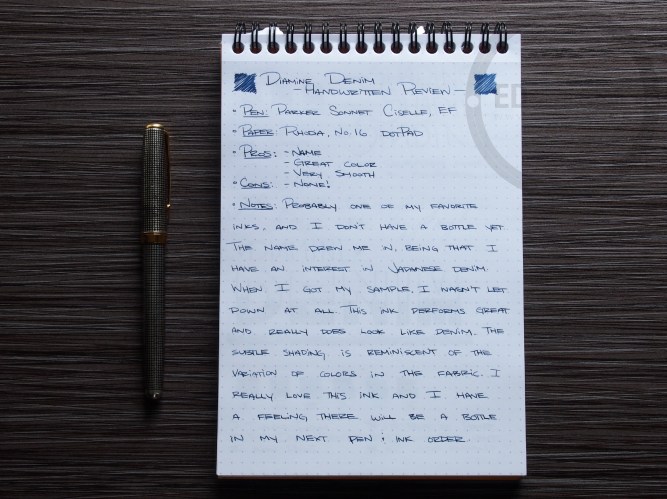 DIAMINE DENIM
- HANDWRITTEN REVIEW -
• PEN: PARKER SONNET CISELLE, EF
• PAPER: RHODIA, NO. 16 DOTPAD
• PROS: - NAME
- GREAT COLOR
- VERY SMOOTH
• CONS: - NONE!
• NOTES: PROBABLY ONE OF MY FAVORITE
INKS, AND I DON'T HAVE A BOTTLE YET.
THE NAME DREW ME IN, BEING THAT I
HAVE AN INTEREST IN JAPANESE DENIM.
WHEN I GOT MY SAMPLE, I WASN'T LET
DOWN AT ALL. THIS INK PERFORMS GREAT
AND REALLY DOES LOOK LIKE DENIM. THE
SUBTLE SHADING IS REMINISCENT OF THE
VARIATION OF COLORS IN THE FABRIC. I
REALLY LOVE THIS INK AND I HAVE
A FEELING THERE WILL BE A BOTTLE
IN MY NEXT PEN & INK ORDER.